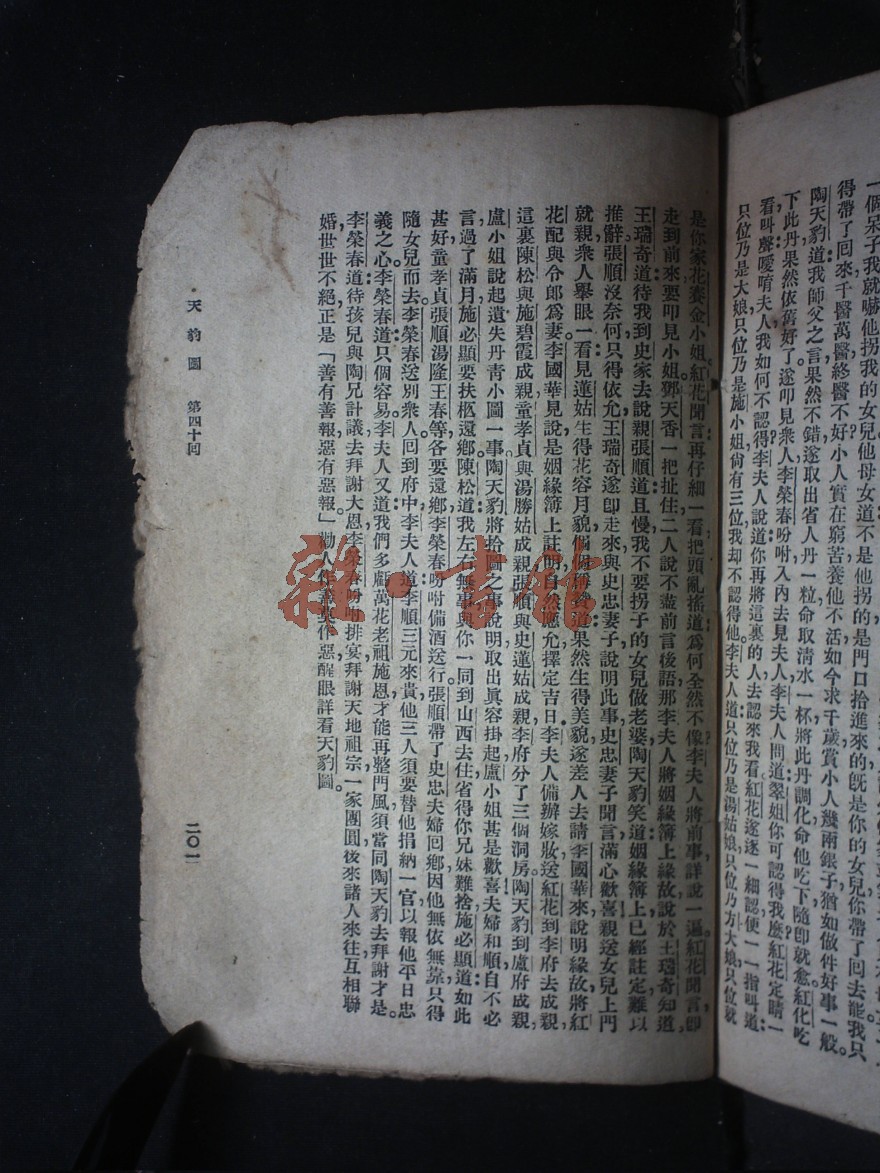 一個呆子我就嚇他拐我的兒他母女道不是他拐的是門口拾進來的旣是你的女兒你帶了回去罷我只
得帶了回來千醫萬醫終醫不好小人實在窮苦養他不活如今求千歲賞小人幾兩銀子猶如做件好事一般
陶天豹道我師父之言果然不錯遂取出省人丹一粒命取淸水一杯將此丹調化命他吃下隨卽就愈紅花吃
下此丹果然依舊好了遂叩見衆人李榮春吩咐入內去見夫人李夫人問道翠姐你可認得我麽紅花定睛一
看叫聲噯唷夫人我如何不認得李夫人說道你再將這裏的人去認來我看紅花遂逐一細認便一一指叫道
只位乃是大娘只位乃是施小姐尙有三位我却不認得他李夫人道只位乃是湯姑娘只位乃方大娘只位就
是你家花賽金小姐紅花聞言再仔細一看把頭亂搖道爲何全然不像李夫人將前事詳說一遍紅花聞言卽
走到前來要叩見小姐鄧天香一把扯住二人說不盡前言後語那李夫人將姻緣簿上緣故說於王瑞奇知道
王瑞奇道待我到史家去說親張順道且慢我不要拐子的女兒做老婆陶天豹笑道姻緣簿上已經註定難以
推辭張順沒奈何只得依允王瑞奇遂卽走來與史忠妻子說明此事史忠妻子聞言滿心歡喜親送女兒上門
就親衆人舉眼一看見蓮姑生得花容月貌個個稱贊道果然生得美貌遂差人去請李國華來說明緣故將紅
花配與令郎爲妻李國華見說是姻緣簿上註明自然應允擇定吉日李夫人備辦嫁妝送紅花到李府去成親
這裏陳松與施碧霞成親童孝貞與湯勝姑成親張順與史蓮姑成親李府分了三個洞房陶天豹到盧府成親
盧小姐說起遺失丹靑小圖一事陶天豹將拾圖之事說明取出眞容掛起盧小姐甚是歡喜夫婦和順自不必
言過了滿月施必顯要扶柩還鄕陳松道我左右無事與你一同到山西去住省得你兄妹難捨施必顯道如此
甚好童孝貞張順湯隆王春等各要還鄕李榮春吩咐備酒送行張順帶了史忠夫婦回鄕因他無依無靠只得
隨女兒而去李榮春送別衆人回到府中李夫人道李順三元來貴他三人須要替他捐納一官以報他平日忠
義之心李榮春道只個容易李夫人又道我們多虧萬花老祖施恩才能再整門風須當同陶天豹去拜謝才是
李榮春道待孩兒與陶兄計議去拜謝大恩李榮春吩咐排宴拜謝天地祖宗一家團圓後來諸人來往互相聯
婚世世不絕正是「善有善報惡有惡報」勸人作善莫作惡醒眼詳看天豹圖
天豹圖 第四十回 二〇一
雜·書館